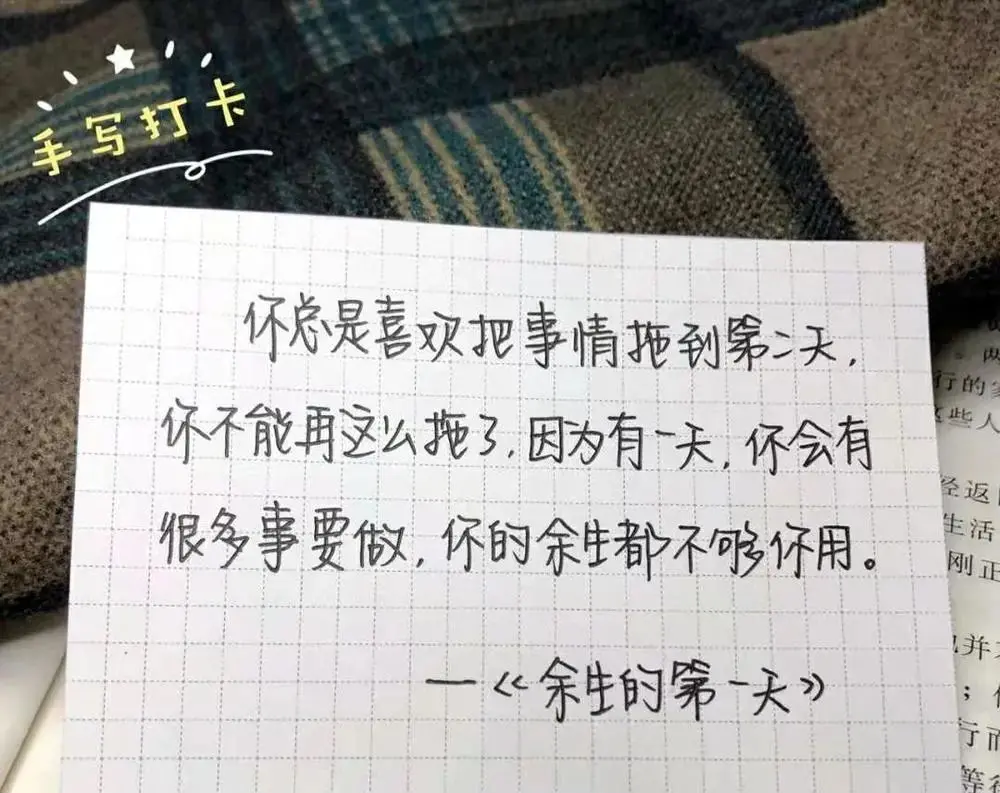 手写打卡
你总是喜欢把事情拖到第二天，
你不能再这么拖了，因为有一天，你会有
很多事要做，你的余生都不够你用。
—《余生的第一天》
行的
这些人
经返
生活
刚正
并
；
行而